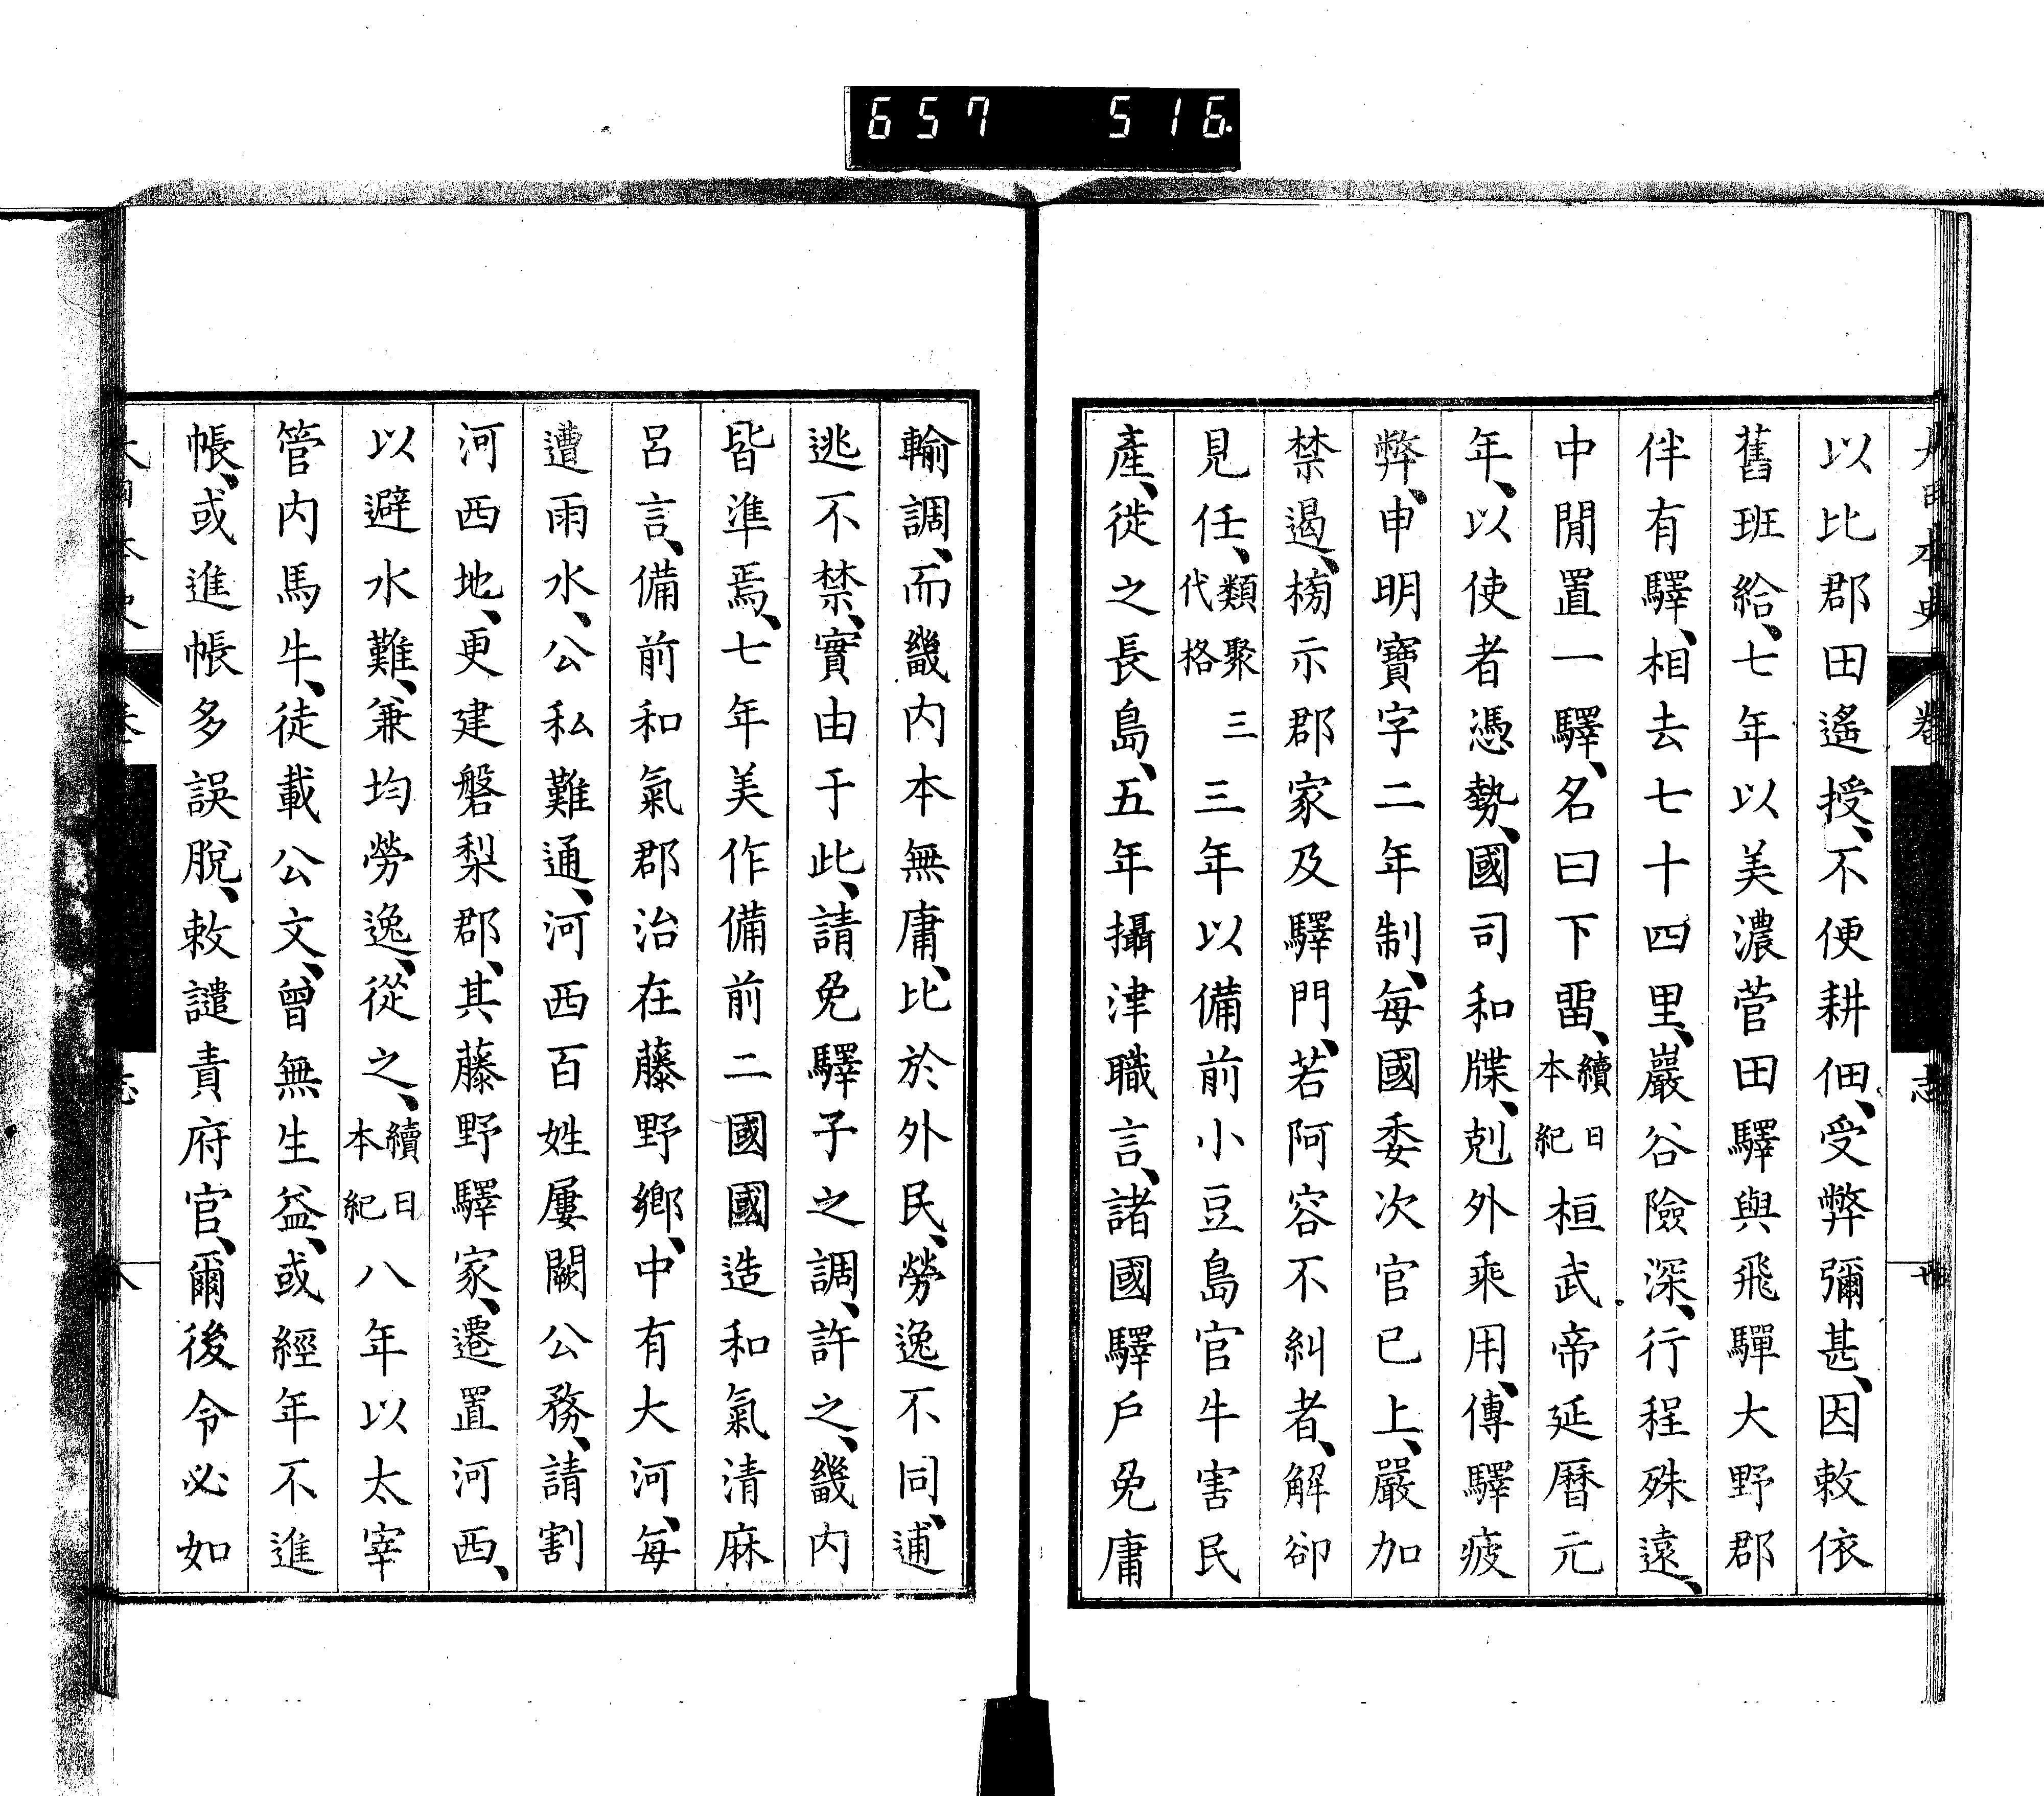 657 516
以比郡田遙授、不便耕佃、受弊彌甚、因敕依
舊班給、七年以美濃菅田驛與飛驒大野郡
伴有驛、相去七十四里、巖谷險深、行程殊遠、
中閒置一驛、名曰下畱、續日本紀桓武帝延曆元
年、以使者憑勢、國司和牒、剋外乘用、傳驛疲
弊、申明寶字二年制、每國委次官已上、嚴加
禁遏、榜示郡家及驛門、若阿容不糾者、解卻
見任、類聚三代格三年以備前小豆島官牛害民
產、徙之長島、五年攝津職言、諸國驛戶免庸
輸調、而畿内本無庸、比於外民、勞逸不同、逋
逃不禁、實由于此、請免驛子之調、許之、畿内
皆準焉、七年美作備前二國國造和氣清麻
呂言、備前和氣郡治在藤野鄉、中有大河、每
遭雨水、公私難通、河西百姓屢闕公務、請割
河西地、更建磐梨郡、其藤野驛家、遷置河西、
以避水難、兼均勞逸、從之、續日本紀八年以太宰
管内馬牛、徒載公文、曾無生益、或經年不進
帳、或進帳多誤脫、敕譴責府官、爾後令必如